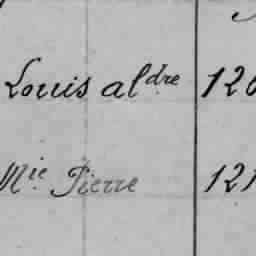 Louis aldre 120
Mie Pierre 121